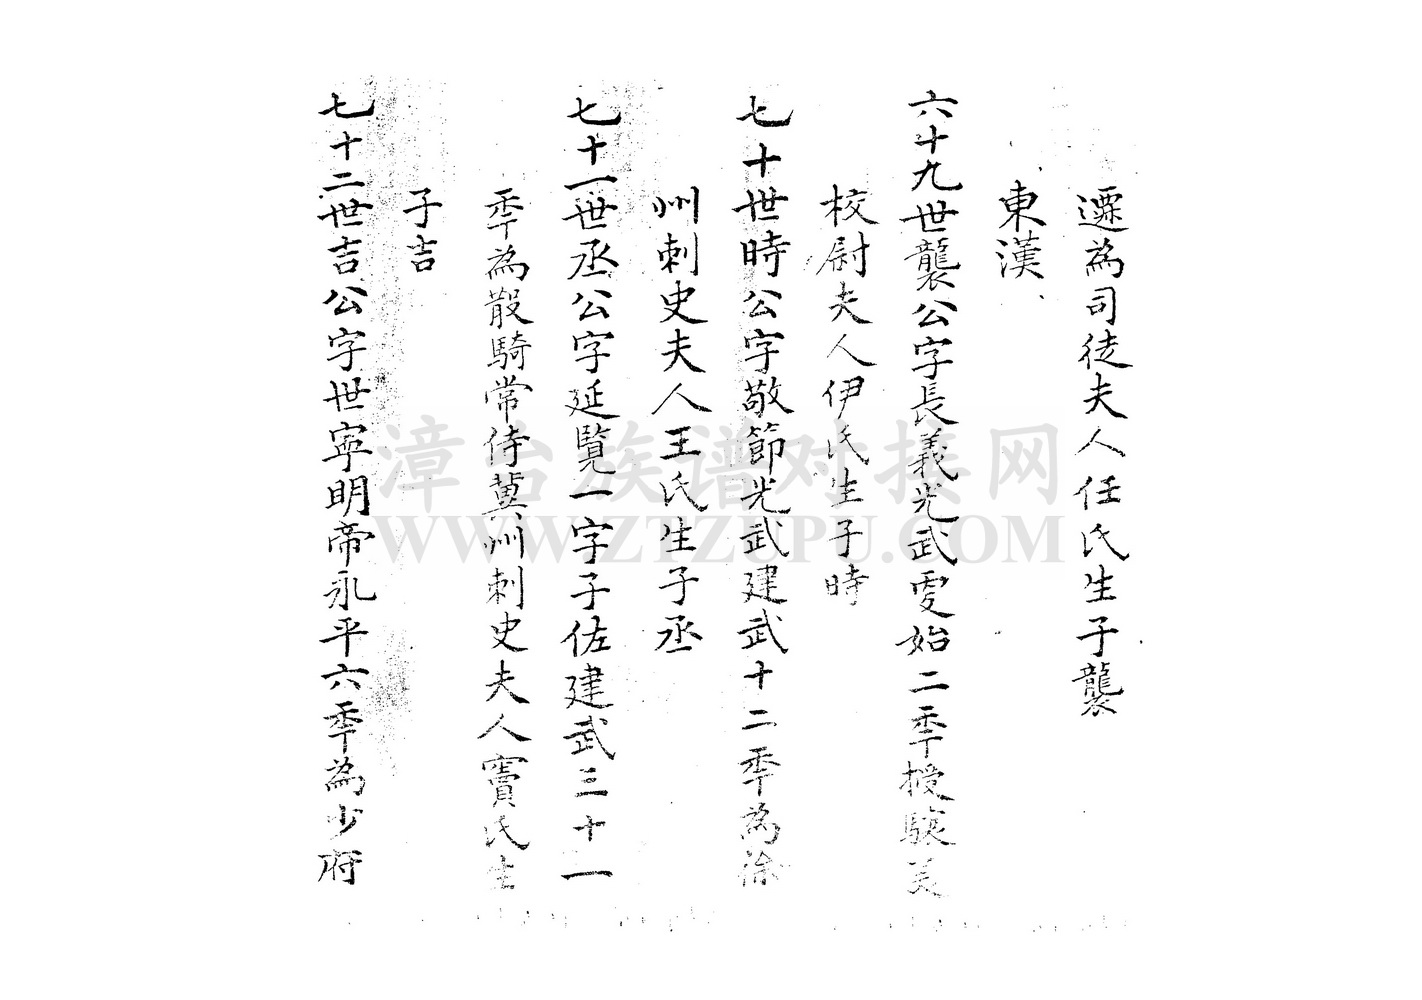 遷為司徒夫人任氏生子襲
東漢
六十九世襲公字長義光武更始二秊授驍美
校尉夫人伊氏生子時
七十世時公字敬節光武建武十二秊為徐
州刺史夫人王氏生子丞
七十一世丞公字延覽一字子佐建武三十一
秊為散騎常侍冀州刺史夫人竇氏生
子吉
七十二世吉公字世寧明帝永平六秊為少府
漳台族谱对接网
WWW.ZTZUPU.COM